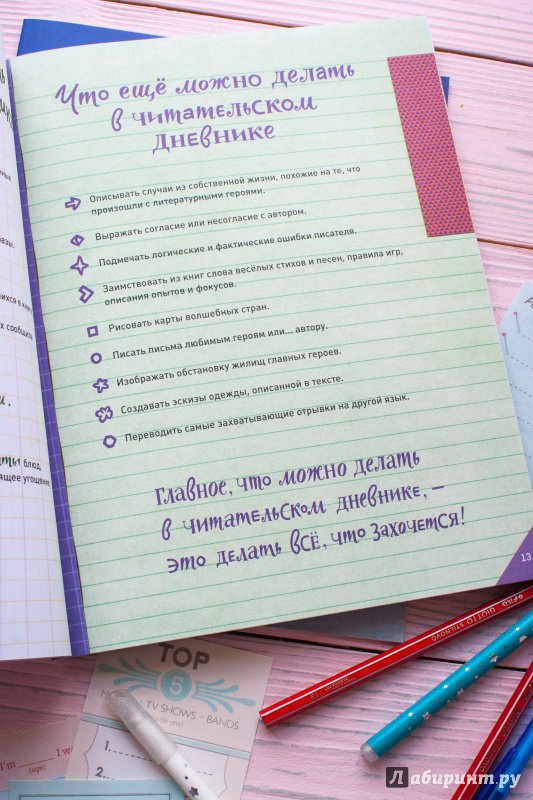 Что ещё можно делать
в читательском
дневнике
Описывать случаи из собственной жизни, похожие на те, что
произошли с литературными героями.
Выражать согласие или несогласие с автором.
Подмечать логические и фактические ошибки писателя.
Заимствовать из книг слова весёлых стихов и песен, правила игр,
описания опытов и фокусов.
Рисовать карты волшебных стран.
Писать письма любимым героям или... автору.
Изображать обстановку жилищ главных героев.
Создавать эскизы одежды, описанной в тексте.
Переводить самые захватывающие отрывки на другой язык.
Главное, что можно делать
в читательском дневнике, –
это делать всё, что захочется!
13
блюд,
угощение
TOP
5
TV SHOWS
BANDS
1.
2.
I'm
(age)
I w
FILA GIOTTO STILNOVO
Лабиринт.ру